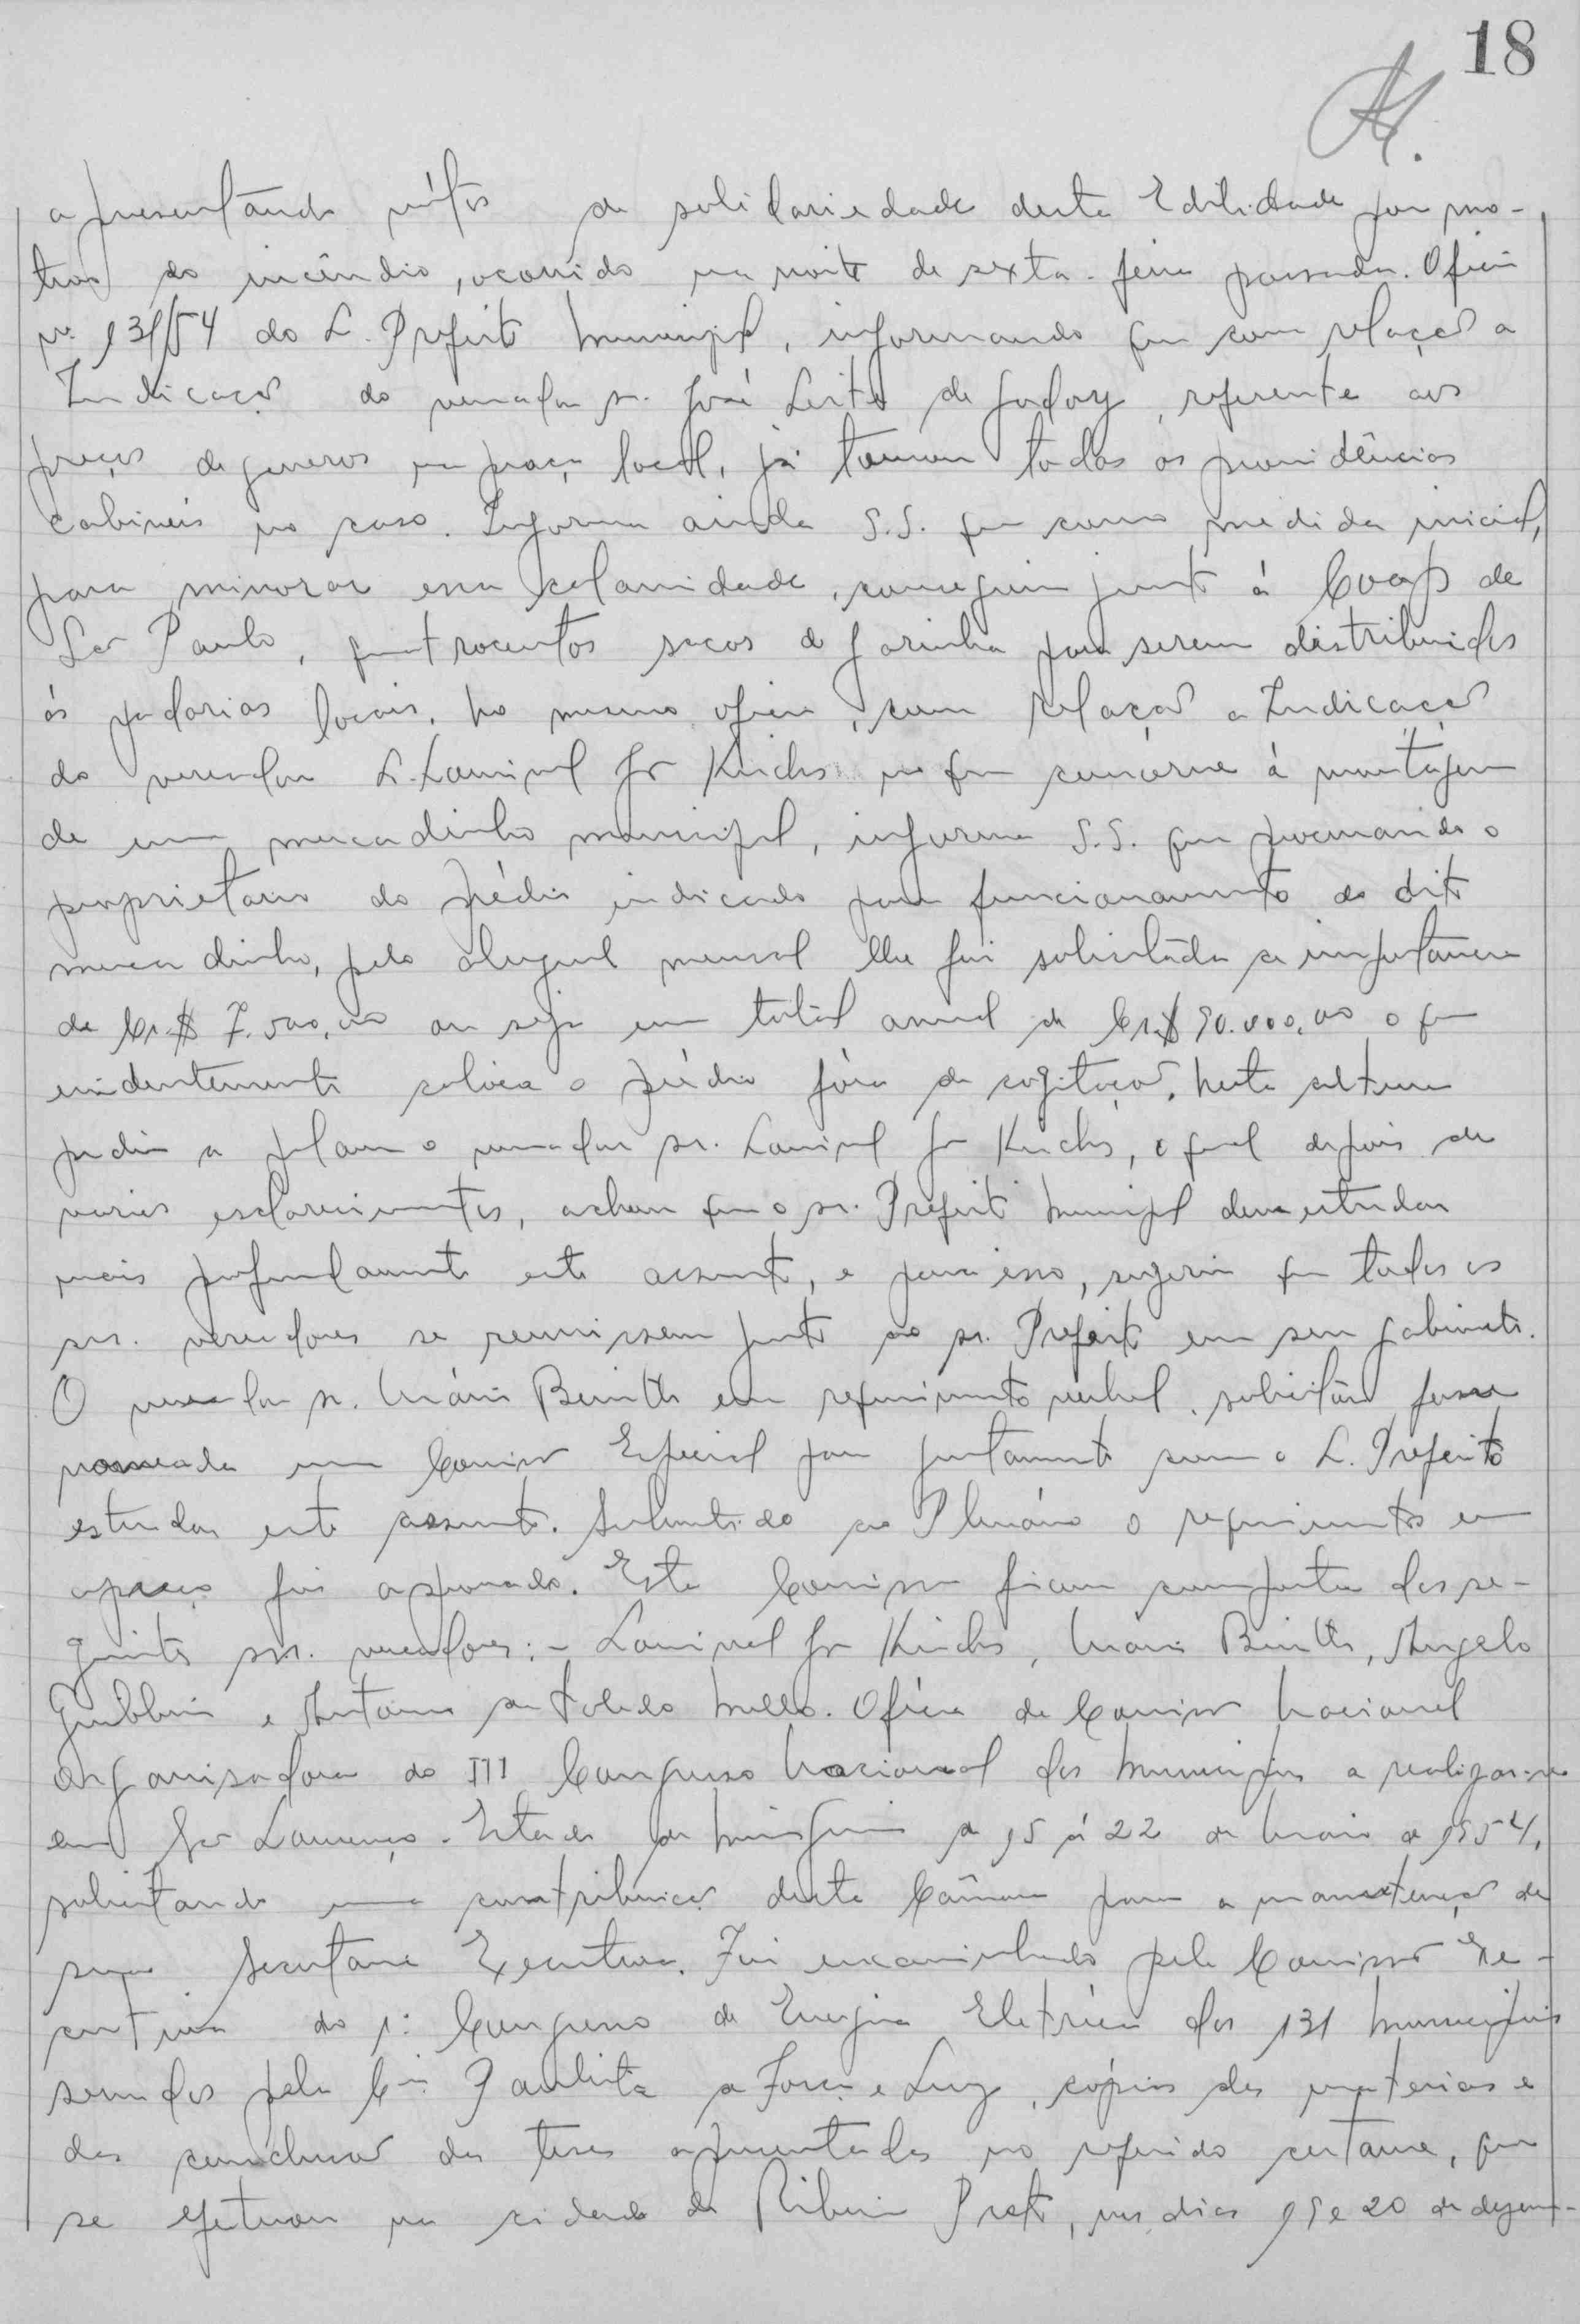 18
apresentando vótos de solidariedade desta Edilidade por mo-
tivo do incêndio, ocorrido na noite de sexta-feira passada. Oficio
nº 131/54 do S. Prefeito Municipal, informando que com relação a
Indicação do vereador sr. José Leite de Godoy, referente aos
preços de generos na praça local, já tomou todas as providências
cabiveis no caso. Informa ainda S.S. que como medida inicial,
para minorar essa calamidade, conseguiu junto á Coap de
São Paulo, quatrocentos sacos de farinha para serem distribuidos
ás padarias locais. No mesmo oficio, com relação a Indicação
do vereador S. Lourival J. Kirchs no que concerne á montagem
de um mercadinho municipal, informa S.S. que procurando o
proprietário do prédio indicado para funcionamento do dito
mercadinho, pelo aluguel mensal lhe foi solicitada a importancia
de Cr.$ 7.500,00 ou seja um total anual de Cr.$ 90.000,00 o que
evidentemente coloca o prédio fóra de cogitação. Nesta altura
pediu a palavra o vereador sr. Lourival J. Kirchs, o qual depois de
varios esclarecimentos, achou que o sr. Prefeito Municipal deve estudar
mais profundamente este assunto, e para isso, sugeriu que todos os
srs. vereadores se reunissem junto ao sr. Prefeito em seu gabinete.
O vereador sr. Mário em requerimento verbal, solicitou fosse
nomeada uma Comissão Especial para juntamente com o S. Prefeito
estudar este assunto. Submetido ao Plenário o requerimento em
apreço foi aprovado. Esta Comissão ficou composta dos se-
guintes srs. vereadores: - Lourival J. Kirchs, Mario, Angelo
e Antonio de Toledo Mello. Oficio da Comissão Nacional
Organisadora do III Congresso Nacional dos Municipios a realizar-se
em São Lourenço - Estado de Minas Gerais de 15 á 22 de Maio de 1954,
solicitando uma contribuição desta Câmara para a manutenção de
sua Secretaria Executiva. Foi encaminhado pela Comissão Exe-
cutiva do 1º Congresso de Energia Elétrica dos 131 Municipios
servidos pela Cia. Paulista de Força e Luz, cópias das materias e
das conclusões das teses apresentadas no referido certame, que
se efetuou na cidade de Ribeirão Preto, nos dias 19 e 20 de dezem-